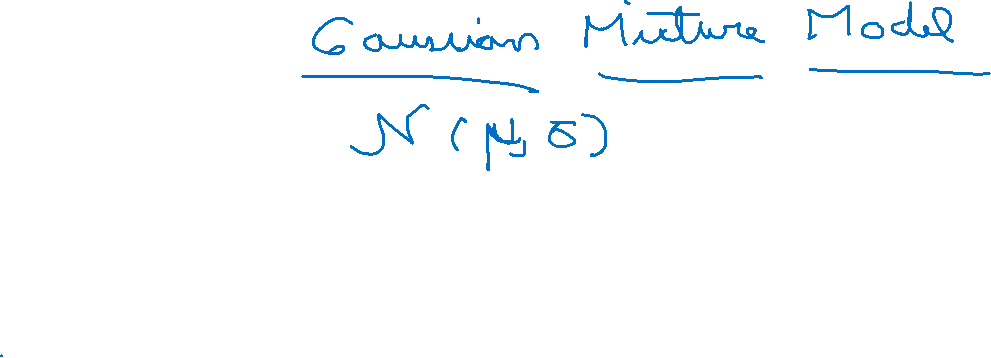 Gaussian Mixture Model
N(μ, σ)